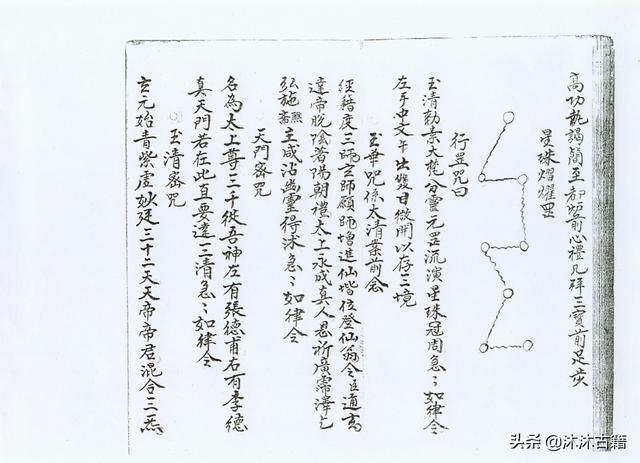 高功執謁簡至都壇前心禮凡拜三寶前足炭
星珠熠燿罡
行罡咒曰
玉清勅素大梵分靈元罡流演星珠冠周急〻如律令
左手中文午出雙目微開以存三境
玉華咒係太清業前念
經籍度三師玄師願師增進仙堦位登仙翁令臣通玄
達帝脫陰著陽朝禮太上永成真人恩祈廣霈澤乞
弘施齋醮主咸沾幽靈得沐急〻如律令
天門密咒
名為太上尊三千從吾神左有張德甫右有李德
真天門若在此直要達三清急〻如律令
玉清密咒
玄元始青紫虛妙廷三十二天天帝帝君混合三炁
头条 @沐沐古籍